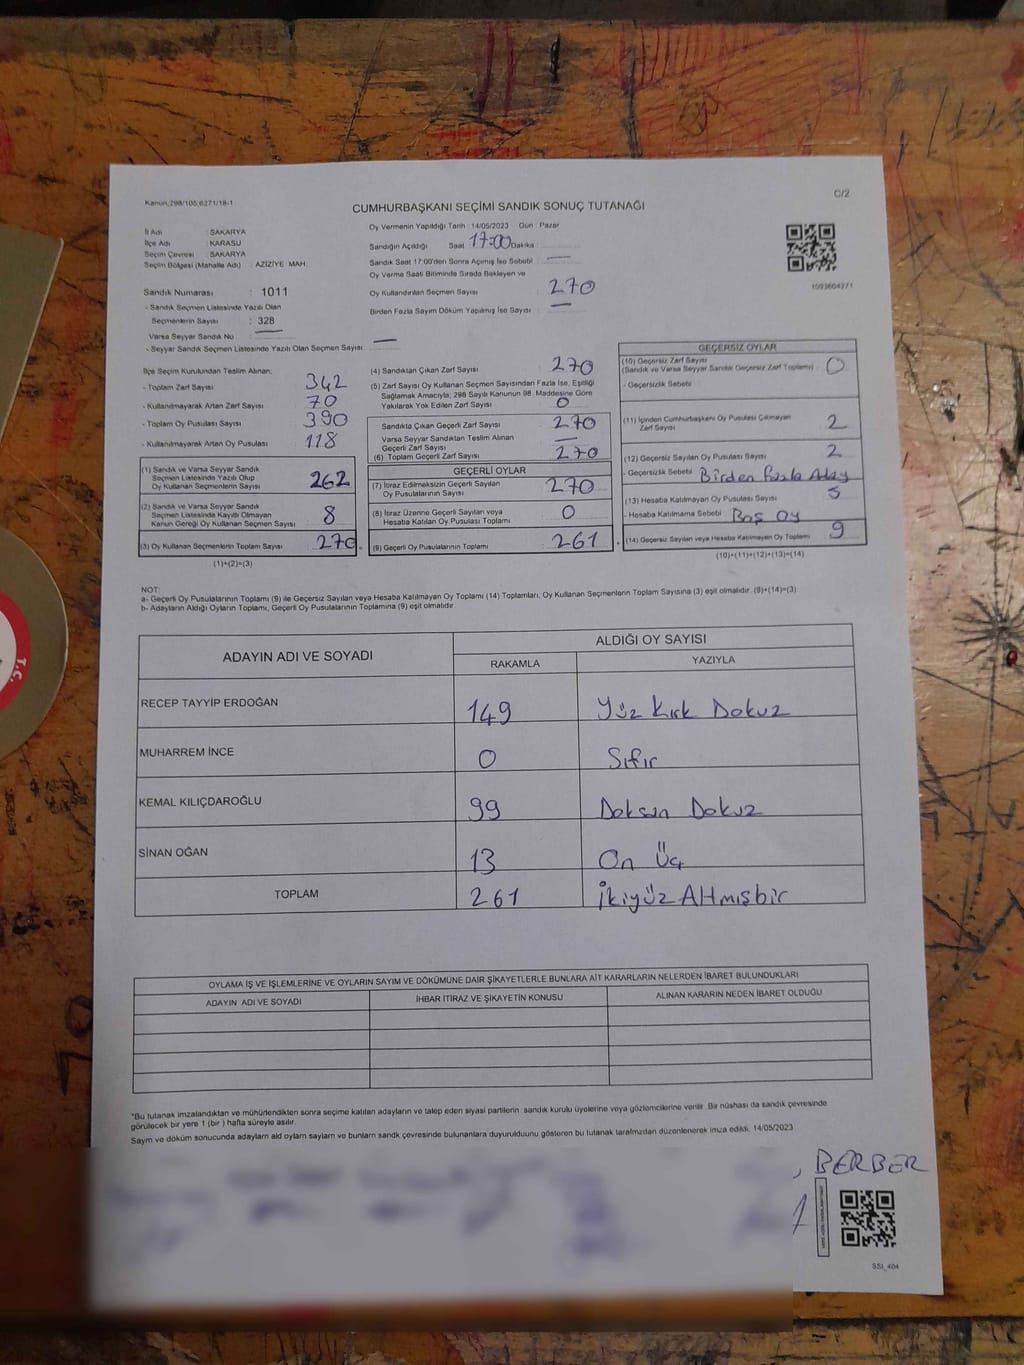 Kanun;298/105;6271/18-1
C/2
CUMHURBAŞKANI SEÇİMİ SANDIK SONUÇ TUTANAĞI
İl Adı : SAKARYA
İlçe Adı : KARASU
Seçim Çevresi : SAKARYA
Seçim Bölgesi (Mahalle Adı) : AZİZİYE MAH.
Sandık Numarası : 1011
- Sandık Seçmen Listesinde Yazılı Olan
Seçmenlerin Sayısı : 328
Varsa Seyyar Sandık No
- Seyyar Sandık Seçmen Listesinde Yazılı Olan Seçmen Sayısı
Oy Vermenin Yapıldığı Tarih : 14/05/2023 Gün : Pazar
Sandığın Açıldığı Saat 17:00 Dakika :
Sandık Saat 17:00'den Sonra Açılmış İse Sebebi :
Oy Verme Saati Bitiminde Sırada Bekleyen ve
Oy Kullandırılan Seçmen Sayısı 270
Birden Fazla Sayım Döküm Yapılmış İse Sayısı :
1093604271
İlçe Seçim Kurulundan Teslim Alınan;
- Toplam Zarf Sayısı 342
- Kullanılmayarak Artan Zarf Sayısı 70
- Toplam Oy Pusulası Sayısı 390
- Kullanılmayarak Artan Oy Pusulası 118
(1) Sandık ve Varsa Seyyar Sandık
Seçmen Listesinde Yazılı Olup
Oy Kullanan Seçmenlerin Sayısı 262
(2) Sandık ve Varsa Seyyar Sandık
Seçmen Listesinde Kayıtlı Olmayan
Kanun Gereği Oy Kullanan Seçmen Sayısı 8
(3) Oy Kullanan Seçmenlerin Toplam Sayısı 270
(1)+(2)=(3)
(4) Sandıktan Çıkan Zarf Sayısı 270
(5) Zarf Sayısı Oy Kullanan Seçmen Sayısından Fazla İse, Eşitliği
Sağlamak Amacıyla; 298 Sayılı Kanunun 98. Maddesine Göre
Yakılarak Yok Edilen Zarf Sayısı 0
Sandıkta Çıkan Geçerli Zarf Sayısı 270
Varsa Seyyar Sandıktan Teslim Alınan
Geçerli Zarf Sayısı
(6) Toplam Geçerli Zarf Sayısı 270
GEÇERLİ OYLAR
(7) İtiraz Edilmeksizin Geçerli Sayılan
Oy Pusulalarının Sayısı 270
(8) İtiraz Üzerine Geçerli Sayılan veya
Hesaba Katılan Oy Pusulası Toplamı 0
(9) Geçerli Oy Pusulalarının Toplamı 261
GEÇERSİZ OYLAR
(10) Geçersiz Zarf Sayısı
(Sandık ve Varsa Seyyar Sandık Geçersiz Zarf Toplamı) : 0
- Geçersizlik Sebebi
(11) İçinden Cumhurbaşkanı Oy Pusulası Çıkmayan
Zarf Sayısı 2
(12) Geçersiz Sayılan Oy Pusulası Sayısı 2
- Geçersizlik Sebebi Birden Fazla Aday
(13) Hesaba Katılmayan Oy Pusulası Sayısı 5
- Hesaba Katılmama Sebebi : Boş Oy
(14) Geçersiz Sayılan veya Hesaba Katılmayan Oy Toplamı 9
(10)+(11)+(12)+(13)=(14)
NOT:
a- Geçerli Oy Pusulalarının Toplamı (9) ile Geçersiz Sayılan veya Hesaba Katılmayan Oy Toplamı (14) Toplamları, Oy Kullanan Seçmenlerin Toplam Sayısına (3) eşit olmalıdır. (9)+(14)=(3)
b- Adayların Aldığı Oyların Toplamı, Geçerli Oy Pusulalarının Toplamına (9) eşit olmalıdır.
ADAYIN ADI VE SOYADI
ALDIĞI OY SAYISI
RAKAMLA YAZIYLA
RECEP TAYYİP ERDOĞAN 149 Yüz Kırk Dokuz
MUHARREM İNCE 0 Sıfır
KEMAL KILIÇDAROĞLU 99 Doksan Dokuz
SİNAN OĞAN 13 On Üç
TOPLAM 261 İkiyüz Altmışbir
OYLAMA İŞ VE İŞLEMLERİNE VE OYLARIN SAYIM VE DÖKÜMÜNE DAİR ŞİKAYETLERLE BUNLARA AİT KARARLARIN NELERDEN İBARET BULUNDUKLARI
ADAYIN ADI VE SOYADI İHBAR İTİRAZ VE ŞİKAYETİN KONUSU ALINAN KARARIN NEDEN İBARET OLDUĞU
*Bu tutanak imzalandıktan ve mühürlendikten sonra seçime katılan adayların ve talep eden siyasi partilerin sandık kurulu üyelerine veya gözlemcilerine verilir. Bir nüshası da sandık çevresinde
görülecek bir yere 1 (bir ) hafta süreyle asılır.
Sayım ve döküm sonucunda adayların ald oyların sayıları ve bunların sandk çevresinde bulunanlara duyurulduunu gösteren bu tutanak tarafmzdan düzenlenerek imza edildi. 14/05/2023
, BERBER
SSI_404
T.C.